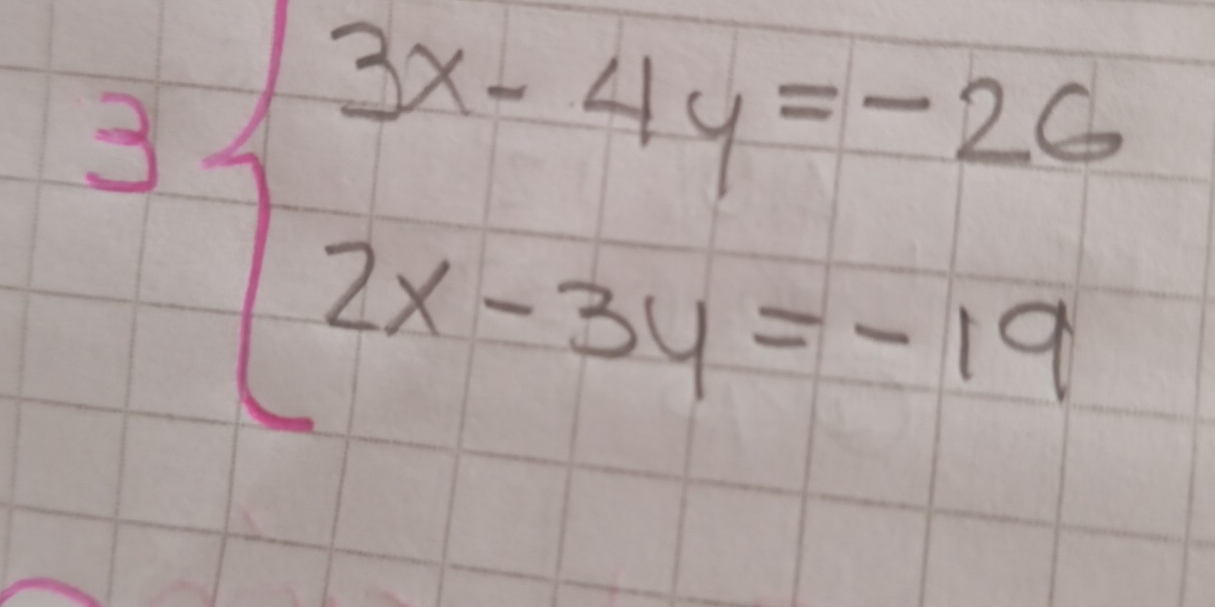 3x - 4y = - 26
3
2x - 3y = - 19